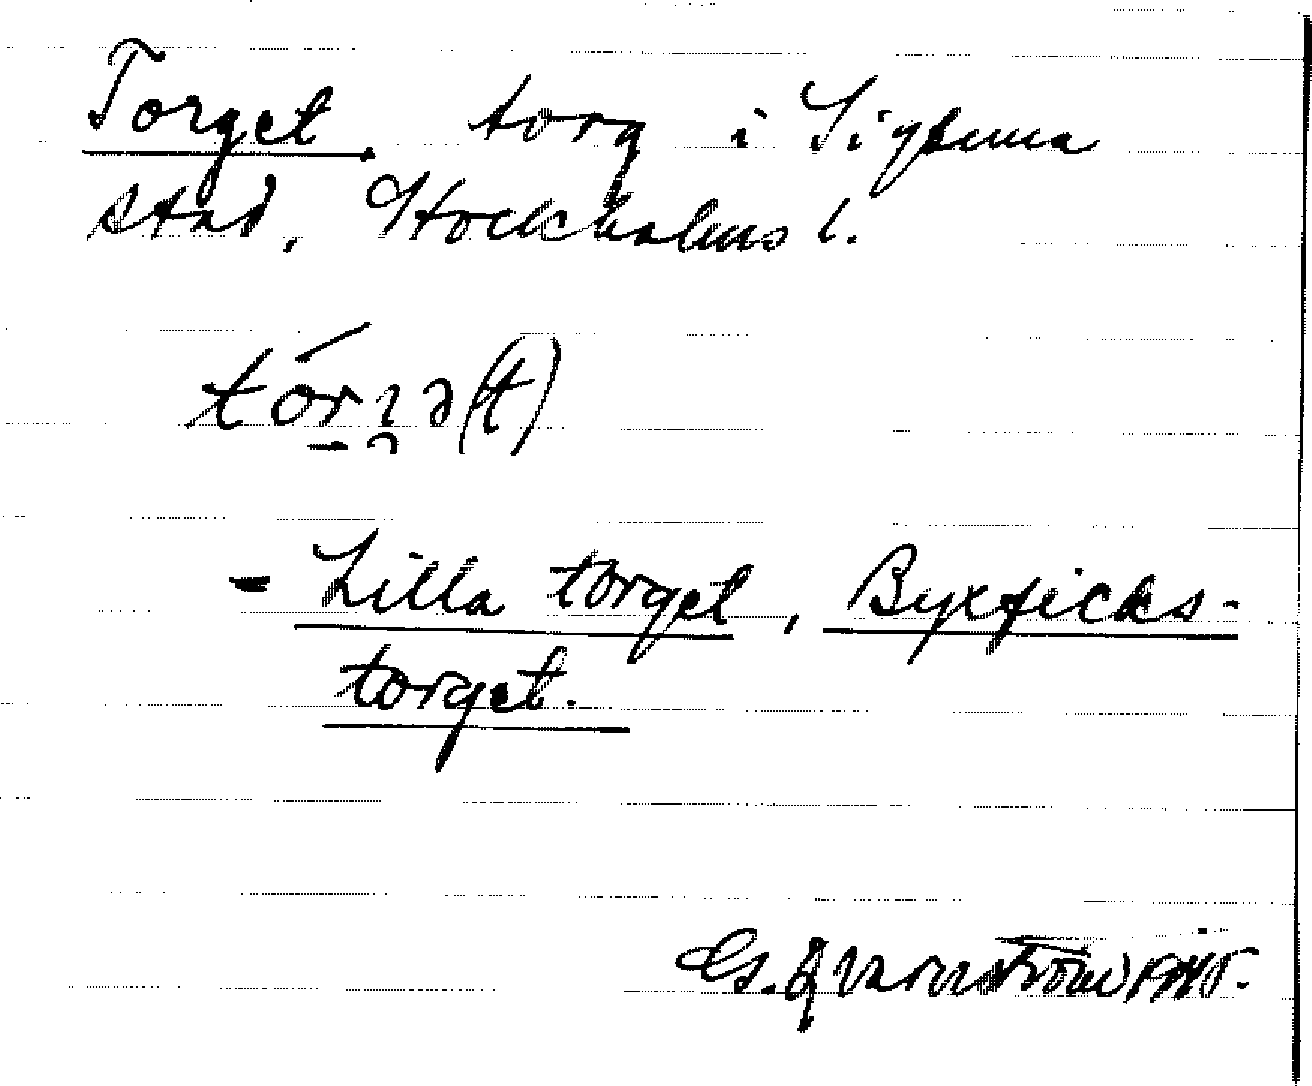 Torget, torg i Sigtuna
stad, Stockholms l.
tórɿə(t)
= Lilla torget, Byxficks-
torget.
G. Qvarnström